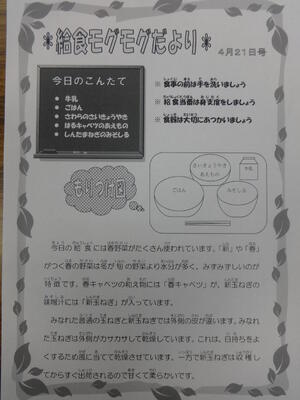 ＊給食モグモグだより＊
4月21日号
今日のこんだて
● 牛乳
● ごはん
● さわらのさいきょうやき
● はるキャベツのあえもの
● しんたまねぎのみそしる
※ 食事の前は手を洗いましょう
※ 給食当番は身支度をしましょう
※ 食器は大切にあつかいましょう
もりつけ図
さいきょうやき
あえもの
牛乳
ごはん
みそしる
今日の給食には春野菜がたくさん使われています。「新」や「春」
がつく春の野菜は冬が旬の野菜より水分が多く、みずみずしいのが
特徴です。春キャベツの和え物には「春キャベツ」が、新玉ねぎの
味噌汁には「新玉ねぎ」が入っています。
みなれた普通の玉ねぎと新玉ねぎでは外側の皮が違います。みなれ
た玉ねぎは外側がカサカサして乾燥しています。これは、日持ちをよ
くするため風に当てて乾燥させています。一方で新玉ねぎは収穫し
てからすぐ出荷されるので甘くて柔らかいです。